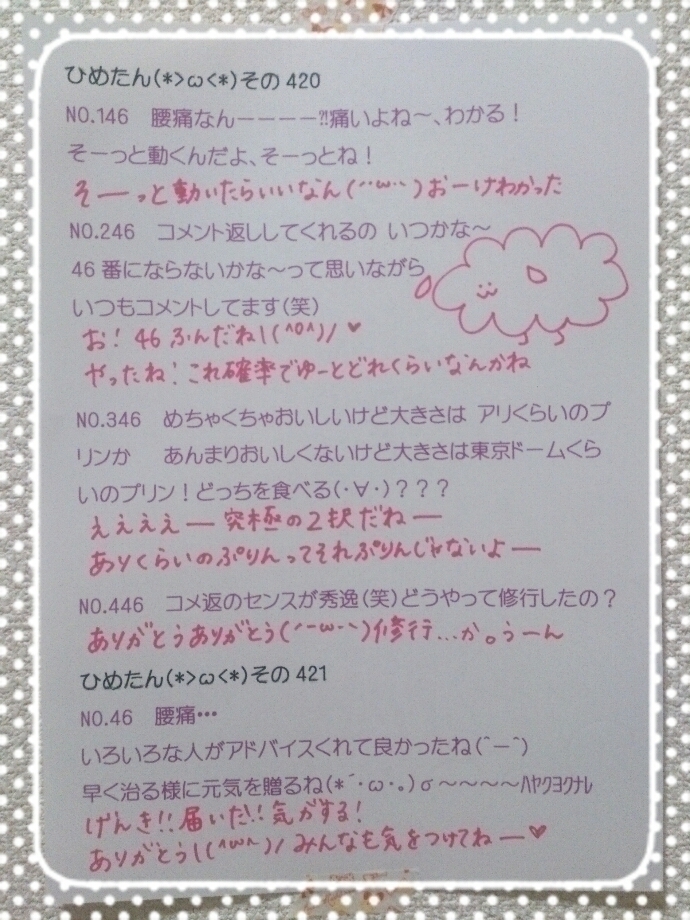 ひめたん(*>ω<*)その420
NO.146　腰痛なんーーーー⁈痛いよね～、わかる！
そーっと動くんだよ、そーっとね！
そーっと動いたらいいなん(´･ω･`)おーけわかった
NO.246　コメント返ししてくれるの いつかな～
46番にならないかな～って思いながら
いつもコメントしてます(笑)
お！46ふんだね\(^o^)/♥
やったね！これ確率でゆーとどれくらいなんかね
NO.346　めちゃくちゃおいしいけど大きさは アリくらいのプ
リンか　あんまりおいしくないけど大きさは東京ドームくら
いのプリン！どっちを食べる(･∀･)？？？
ええええー 究極の2択だねー
ありくらいのぷりんってそれぷりんじゃないよー
NO.446　コメ返のセンスが秀逸(笑)どうやって修行したの？
ありがとうありがとう(´-ω-`)修行...か。うーん
ひめたん(*>ω<*)その421
NO.46　腰痛…
いろいろな人がアドバイスくれて良かったね(^ー^)
早く治る様に元気を贈るね(*´･ω･｡)σ～～～～ﾊﾔｸﾖｸﾅﾚ
げんき!!届いた!!気がする！
ありがとう\(^ω^)/みんなも気をつけてねー♥